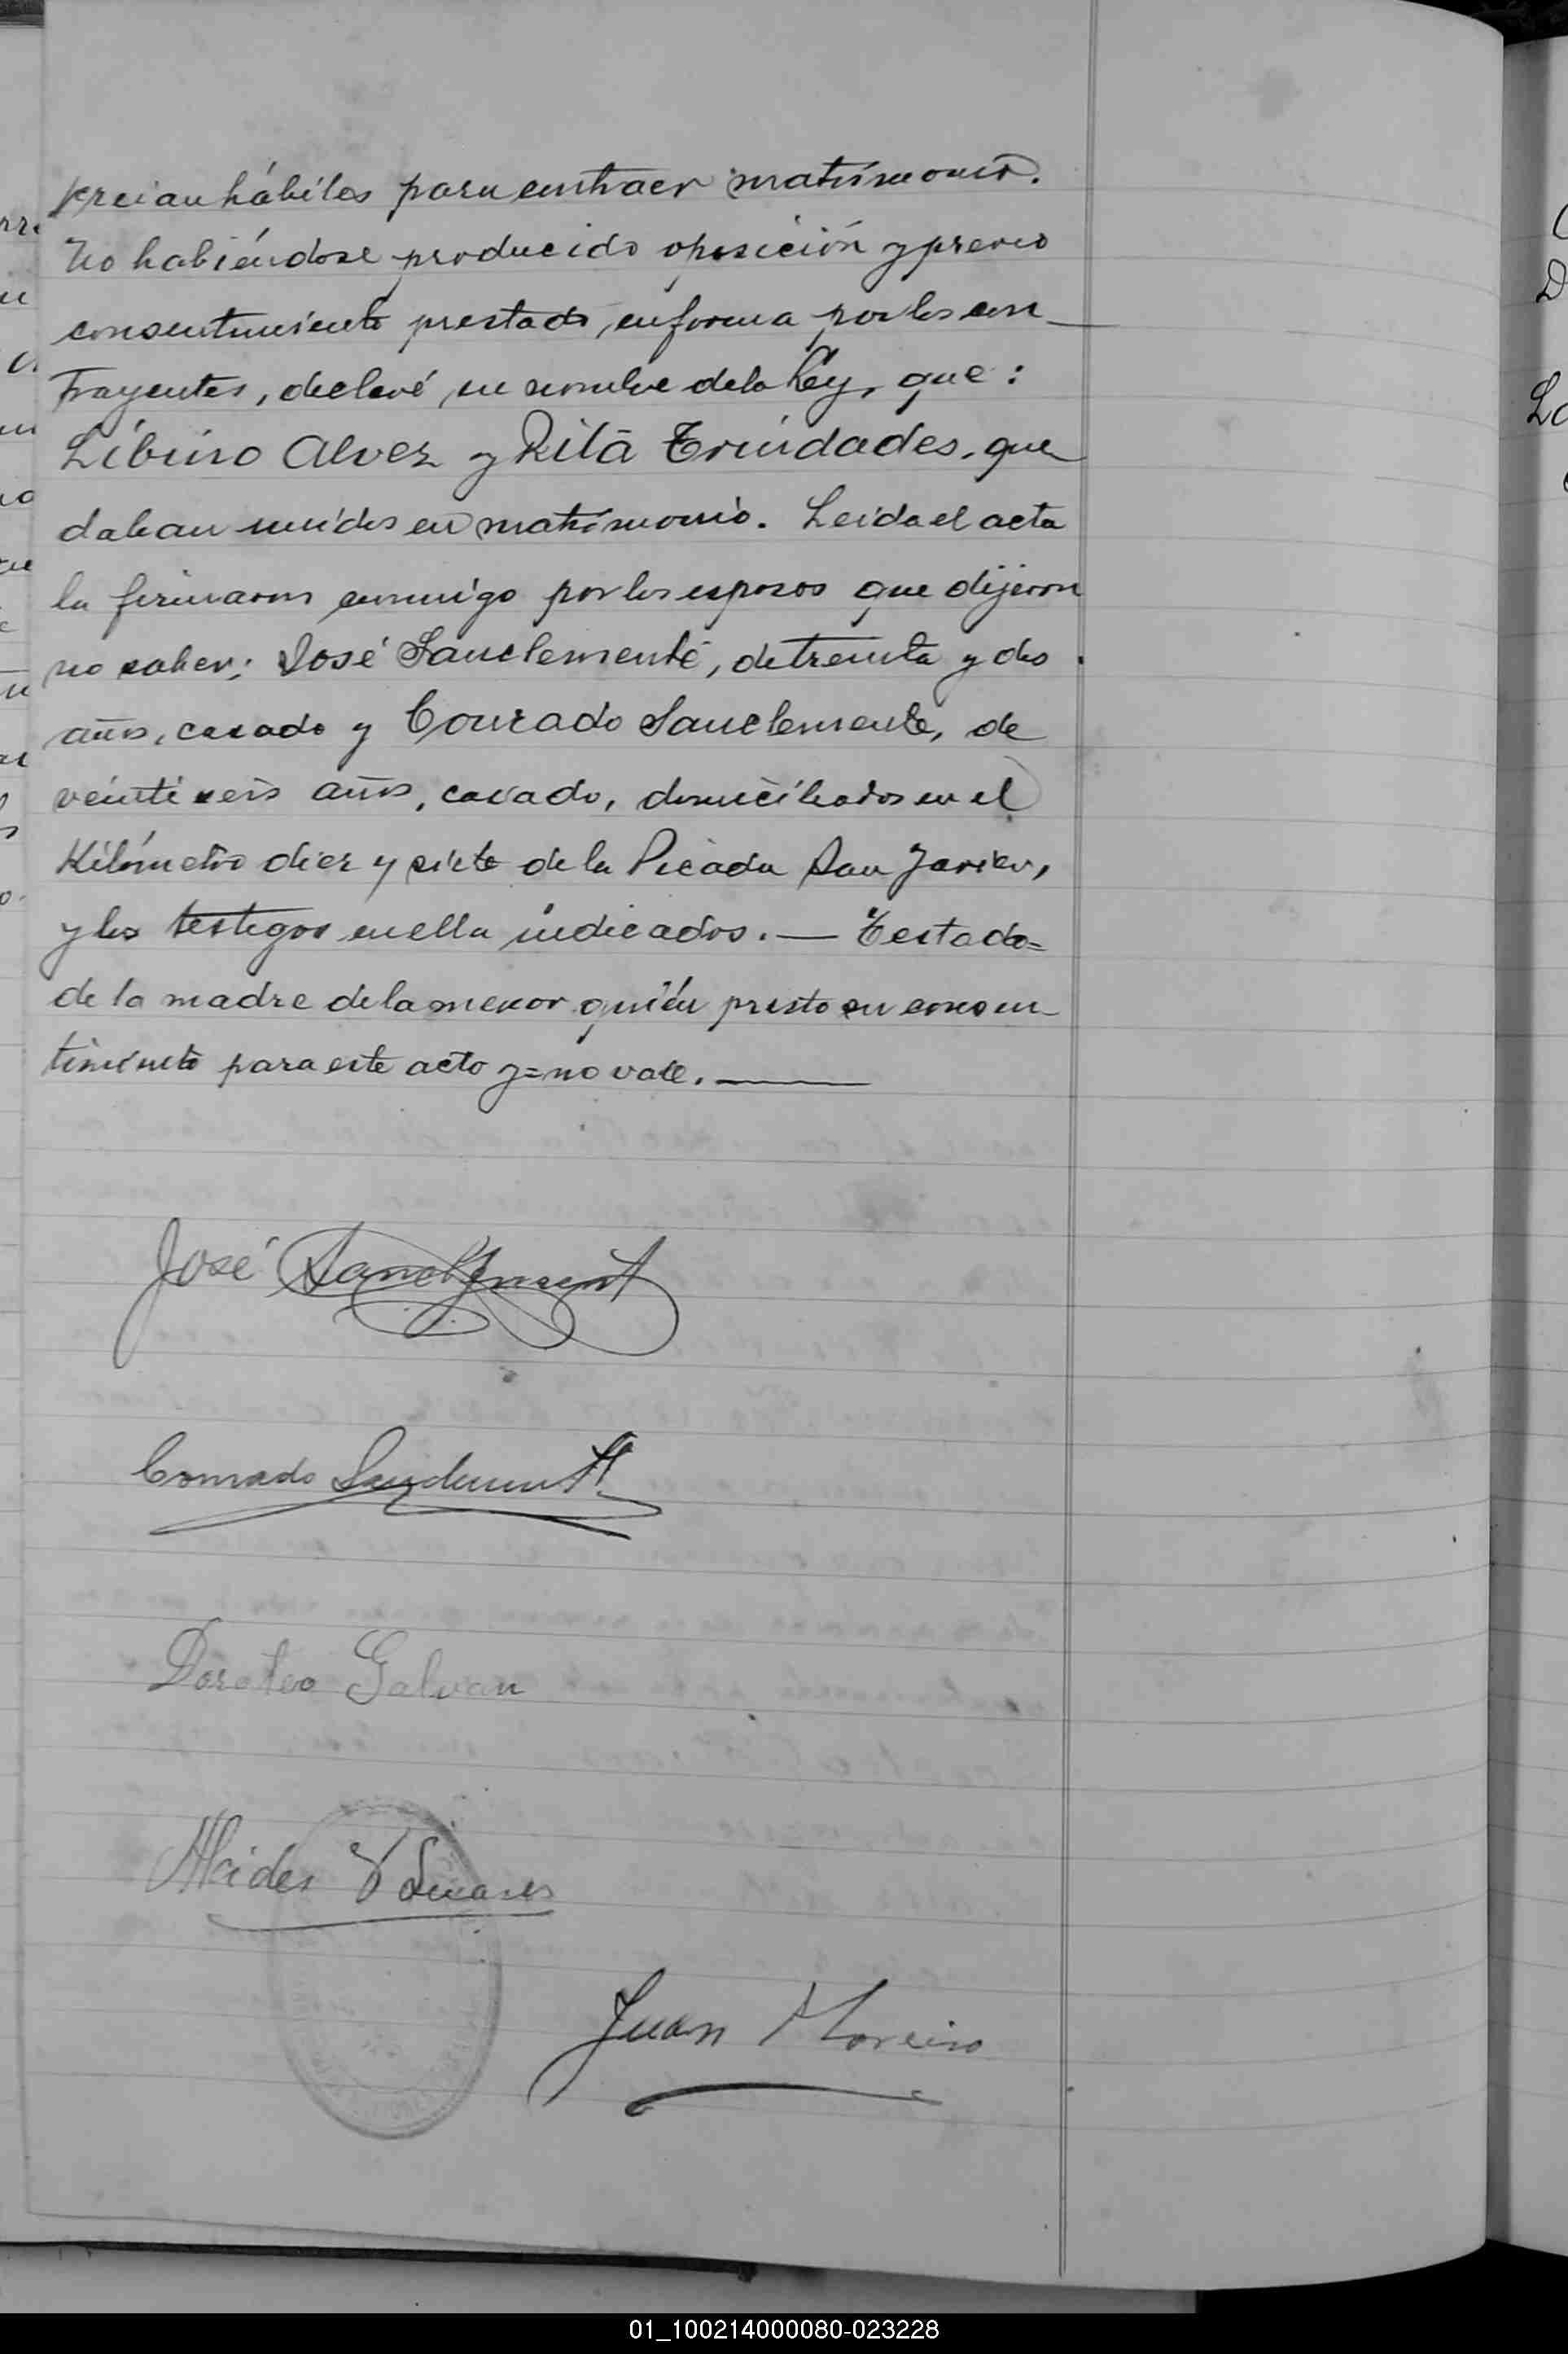 creian hábiles para contraer matrimonio.
No habiéndose producido oposición y previo
consentimiento prestado, en forma por los con
trayentes, declaré, en nombre de la Ley, que:
Libino Alvez y Rita Trindades, que
daban unidos en matrimonio. Leida el acta
la firmaron conmigo por los esposos que dijeron
no saber: José Sanclemente, de treinta y dos
años, casado y Conrado Sanclemente, de
veinti seis años, casado, domiciliados en el
Kilómetro diez y siete de la Picada San Javier,
y los testigos en ella indicados.— Testado=
de la madre de la menor quién presto su consen-
timiento para este acto y=no vale.—
José Sanclement
Conrado Sanclement
Doroteo Galvan
Alcides V Linares
Juan Moreira
01_100214000080-023228